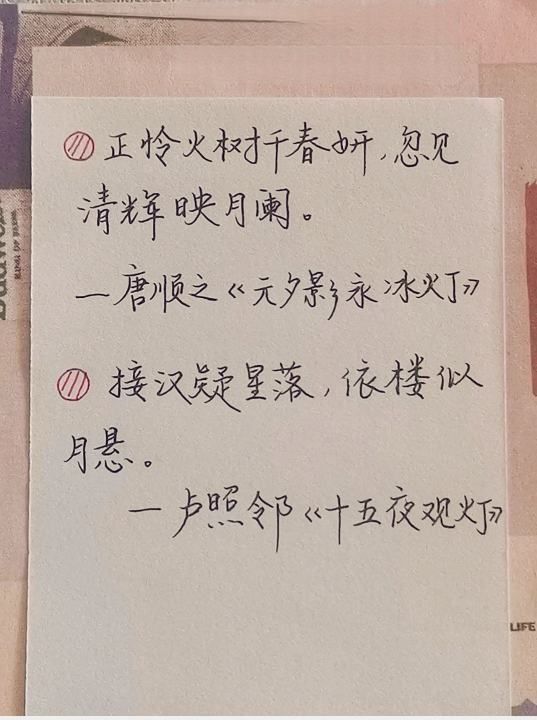 正怜火树千春妍,忽见
清辉映月阑。
—唐顺之《元夕影永冰灯》
接汉疑星落,依楼似
月悬。
—卢照邻《十五夜观灯》
LIFE